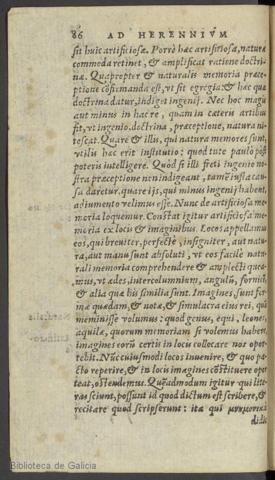 86 AD HERENNIVM
sit huic artificiosæ. Porrò hæc artificiosa, naturæ
commoda retinet, & amplificat ratione doctri-
næ. Quapropter & naturalis memoria præce-
ptione cōfirmanda est, vt sit egregia: & hæc quæ
doctrina datur, indiget ingenij. Nec hoc magis
aut minus in hac re, quàm in cæteris artibus
fit, vt ingenio doctrina, præceptione, natura ni-
tescat. Quare & illis, qui natura memores sunt,
vtilis hæc erit institutio: quod tute paulò pòst
poteris intelligere. Quòd si illi freti ingenio no-
stra præceptione non indigeant, tamē iusta cau-
sa daretur, quare ijs, qui minus ingenij habent,
adiumento velimus esse. Nunc de artificiosa me-
moria loquemur. Constat igitur artificiosa me-
moria ex locis & imaginibus. Locos appellamus
eos, qui breuiter, perfectè, insigniter, aut natu-
ra, aut manu sunt absoluti, vt eos facilè natu-
rali memoria comprehendere & amplecti quea-
mus, vt ædes, intercolumnium, angulū, fornicē,
& alia quæ his similia sunt. Imagines, sunt for-
mæ quædam, & notæ, & simulacra eius rei, quā
meminisse volumus: quod genus, equi, leones,
aquilæ, quorum memoriam si volemus habere,
imagines eorū certis in locis collocare nos opor-
tebit. Nūc cuiusmodi locos inuenire, & quo pa-
cto reperire, & in locis imagines cōstituere opor-
teat, ostendemus. Quēadmodum igitur qui litte-
ras sciunt, possunt id quod dictum est scribere, &
recitare quod scripserunt: ita qui μνημονικὰ
didi-
Biblioteca de Galicia